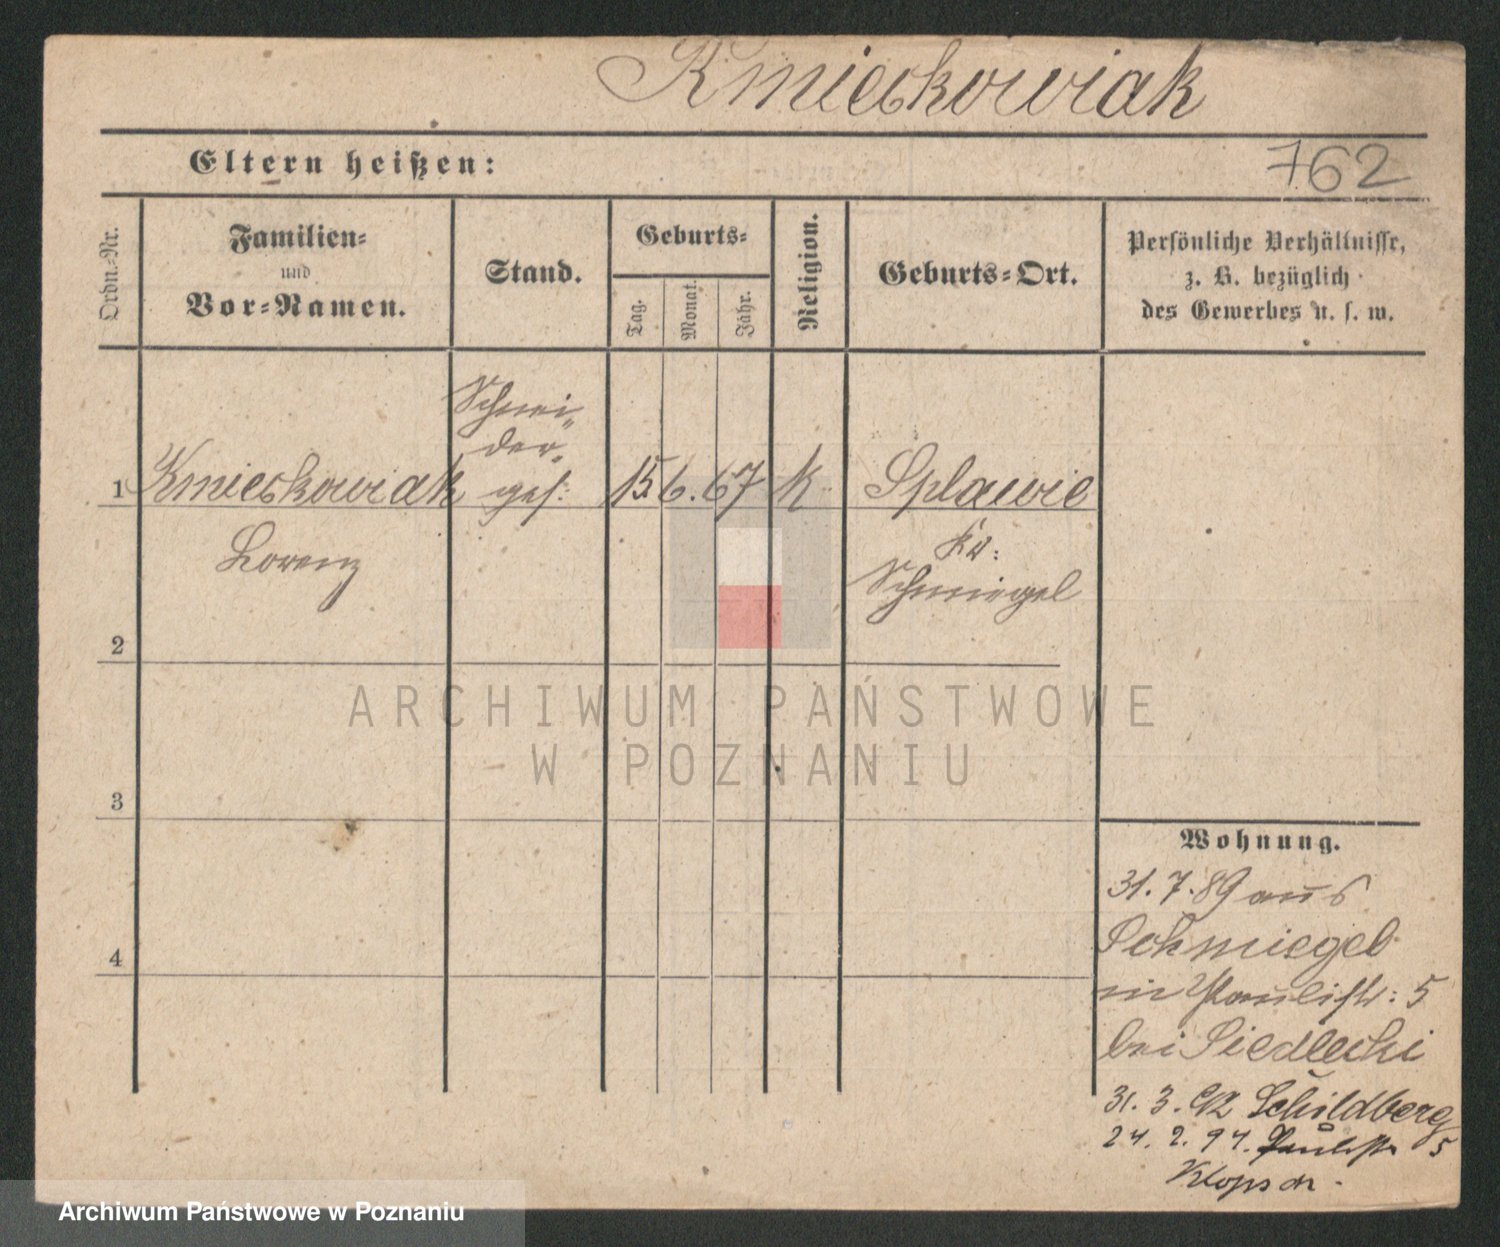 Kmieckowiak
Eltern heißen:
762
Ordn.-Nr.
Familien-
und
Vor-Namen.
Stand.
Geburts-
Tag.
Monat.
Jahr.
Religion.
Geburts-Ort.
Persönliche Verhältnisse,
z. B. bezüglich
des Gewerbes u. s. w.
Schnei-
der-
1 Kmieckowiak ges: 15. 6. 67 k Splawie
Lorenz
Kr:
Schmiegel
2
ARCHIWUM PAŃSTWOWE
W POZNANIU
3
Wohnung.
31. 7. 89 aus
Schmiegel
in Paulistr: 5
4
bei Siedlecki
31. 3. 92 Schildberg
24. 2. 94. Paulistr 5
Klopsch.
Archiwum Państwowe w Poznaniu